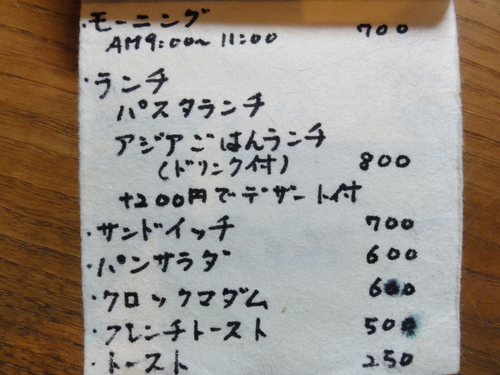 ・モーニング 700
AM9:00〜11:00
・ランチ
パスタランチ
アジアごはんランチ
(ドリンク付) 800
+200円でデザート付
・サンドイッチ 700
・パンサラダ 600
・クロックマダム 600
・フレンチトースト 500
・トースト 250